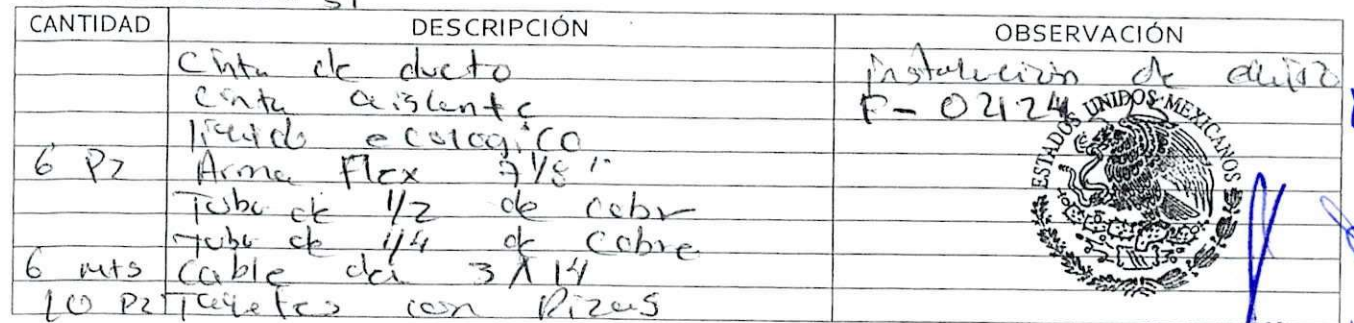 CANTIDAD DESCRIPCIÓN OBSERVACIÓN
Cinta de ducto instalación de
Cinta aislante F-02124
liquido ecologico
6 Pz Arma Flex 7/8"
Tubo de 1/2 de cobr
Tubo de 1/4 de Cobre
6 mts Cable de 3x14
10 Pz Taquetes con Pizas
ESTADOS UNIDOS MEXICANOS